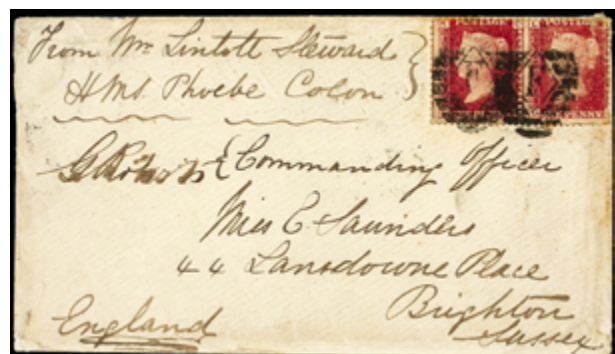 From Mr Lintott Steward
HMS. Phoebe Colon
Commanding Officer
Miss E. Saunders
44 Lansdowne Place
Brighton
Sussex
England
POSTAGE POSTAGE
PENNY